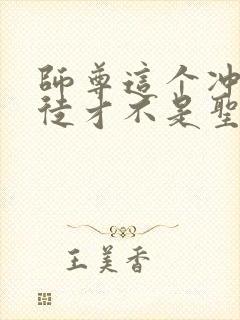 師尊這个冲
徒才不是聖
王美香